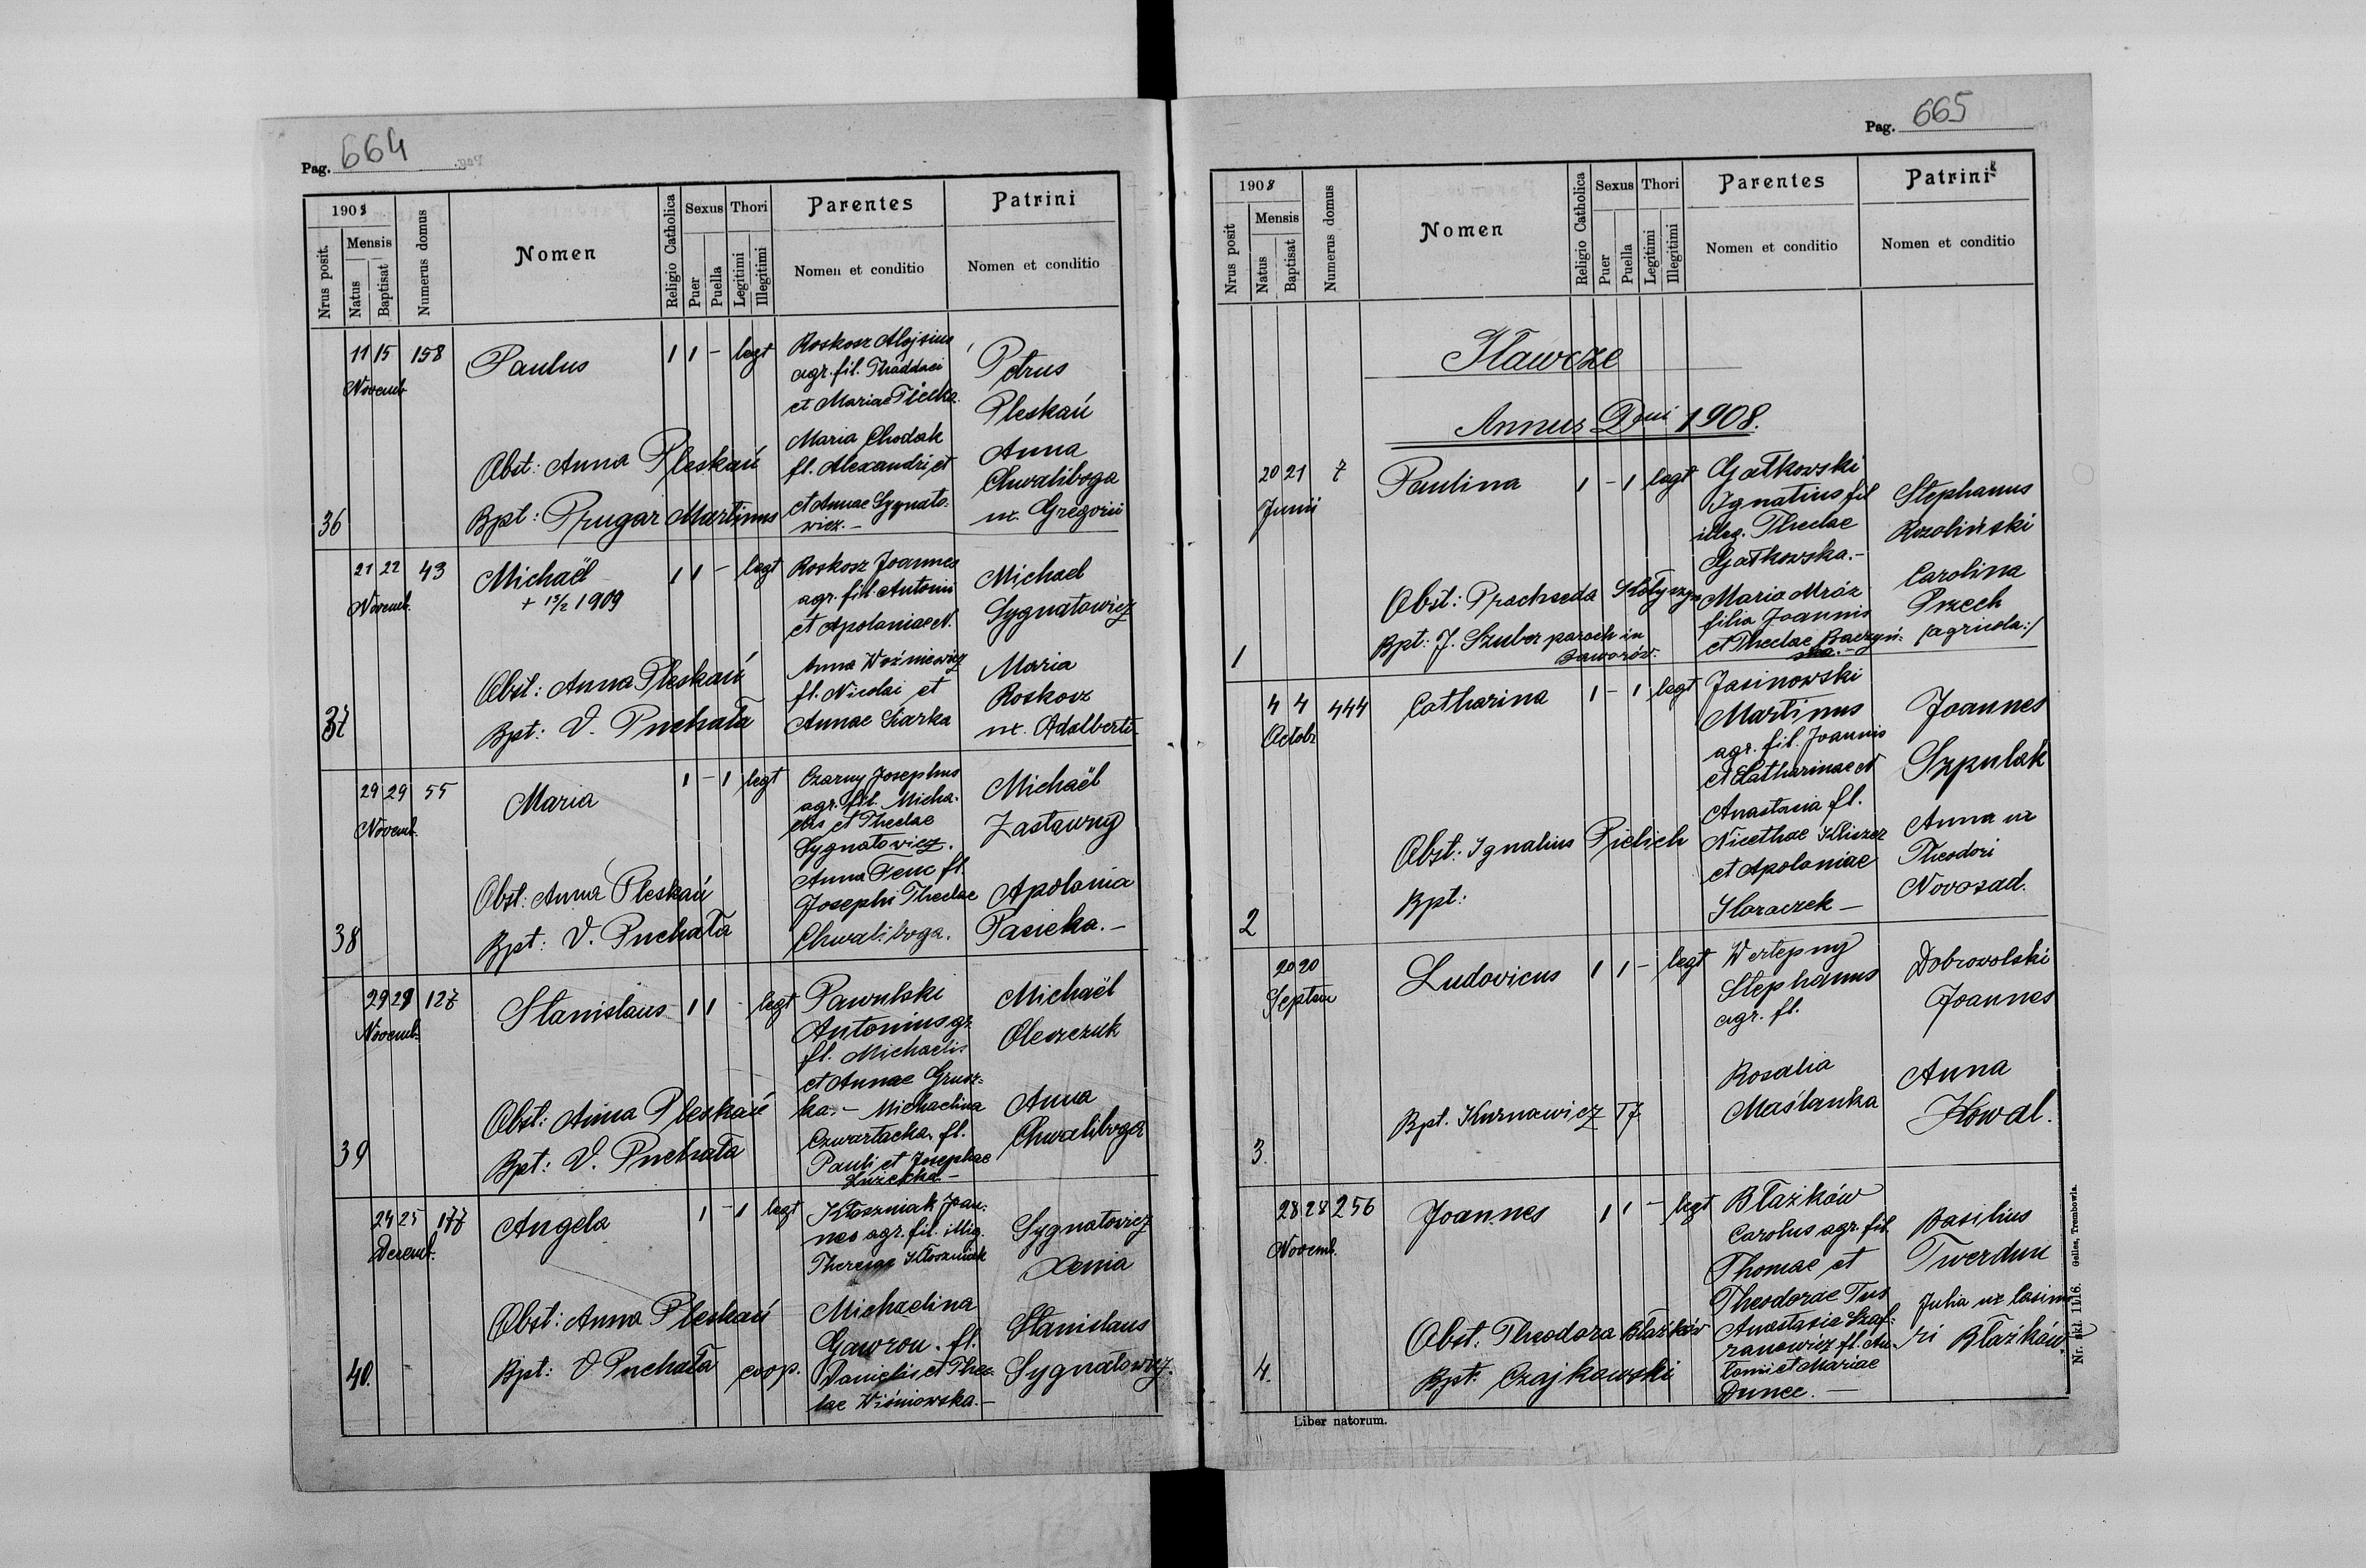 Pag. 664
1908
Nrus posit.
Mensis
Natus
Baptisat
Numerus domus
Nomen
Religio Catholica
Sexus
Puer
Puella
Thori
Legitimi
Illegitimi
Parentes
Nomen et conditio
Patrini
Nomen et conditio
11 15 158 Paulus 1 1 - legt
Novemb
Roskosz Alojsius
agr. fil. Thaddaei
et Mariae
Maria Chodak
fl. Alexandri et
et Annae Sygnato-
wicz.-
Petrus
Pleskań
Anna
Chwaliboga
ux. Gregorii
Obst: Anna Pleskań
36 Bpt: Prugar Martinus
21 22 43 Michaël 1 1 - legt
Novemb.
+ 15/2 1909
Roskosz Joannes
agr. fil. Antonii
et Apoloniae N.
Anna Woźniewicz
fl. Nicolai et
Annae Siarka
Michael
Sygnatowicz
Maria
Roskosz
ux. Adalberti-
Obst: Anna Pleskań
37 Bpt: V. Puchała
29 29 55 Maria 1 - 1 legt
Novemb.
Czarny Josephus
agr. fil. Micha-
elis et Theclae
Sygnatowicz.
Anna Fenc fl.
Josephi Theclae
Chwaliboga.
Michaël
Zastawny
Apolonia
Pasieka.-
Obst: Anna Pleskań
38 Bpt: V. Puchała
29 29 127 Stanislaus 1 1 - legt
Novemb.
Pawulski
Antonius gr.
fl. Michaelis
et Annae Grusz-
ka.- Michaelina
Czwartacka, fl.
Pauli et Josephae
Michaël
Olewczuk
Anna
Chwaliboga
Obst: Anna Pleskań
39 Bpt: V. Puchała
24 25 177 Angela 1 - 1 legt
Decemb.
Kłoszniak Joan-
nes agr. fil. illig.
Theresae Kłoszniak
Michaelina
Gawron. fl.
Danielis et Thec-
lae Wiśniowska.-
Sygnatowicz
Xenia
Stanislaus
Sygnatowicz.
Obst: Anna Pleskań
40. Bpt: V Puchała coop.
Pag. 665
1908
Nrus posit
Mensis
Natus
Baptisat
Numerus domus
Nomen
Religio Catholica
Sexus
Puer
Puella
Thori
Legitimi
Illegitimi
Parentes
Nomen et conditio
Patrini
Nomen et conditio
Iławcze
Annus Dni 1908.
20 21 7 Paulina 1 - 1 legt
Junii
Gałkowski
Ignatius fil
illeg. Theclae
Gałkowska.-
Maria Mróz
filia Joannis
et Theclae Baczyń-
ska.-
Stephanus
Rozoliński
Carolina
Przech
/agricola:/
Obst: Prachseda
1 Bpt: J. Szuber paroch in
Jaworów.
4 4 444 Catharina 1 - 1 legt
Octobr
Jasinowski
Martinus
agr. fil. Joannis
et Catharinae N
Anastasia fl.
Nicethae Kliszcz
et Apoloniae
Haraczek -
Joannes
Szpulak
Anna ux
Theodori
Novosad.
Obst: Ignatius Pielich
2 Bpt:
20 20 Ludovicus 1 1 - legt
Septem
Wertepny
Stephanus
agr. fl.
Rosalia
Maślanka
Dobrowolski
Joannes
Anna
Kowal.
3. Bpt. Kurnawicz TJ
28 28 256 Joannes 1 1 - legt
Novemb.
Błażków
Carolus agr. fil.
Thomae et
Theodorae Tus
Anastasia Szaf-
ranowicz fl. An-
toni et Mariae
Dunec.-
Basilius
Twerdun
Julia ux Casimi-
ri Błażków
Obst: Theodora Błażków
4. Bpt: Czajkowski
Liber natorum.
Nr. skł. 1116. Gelles, Trembowla.